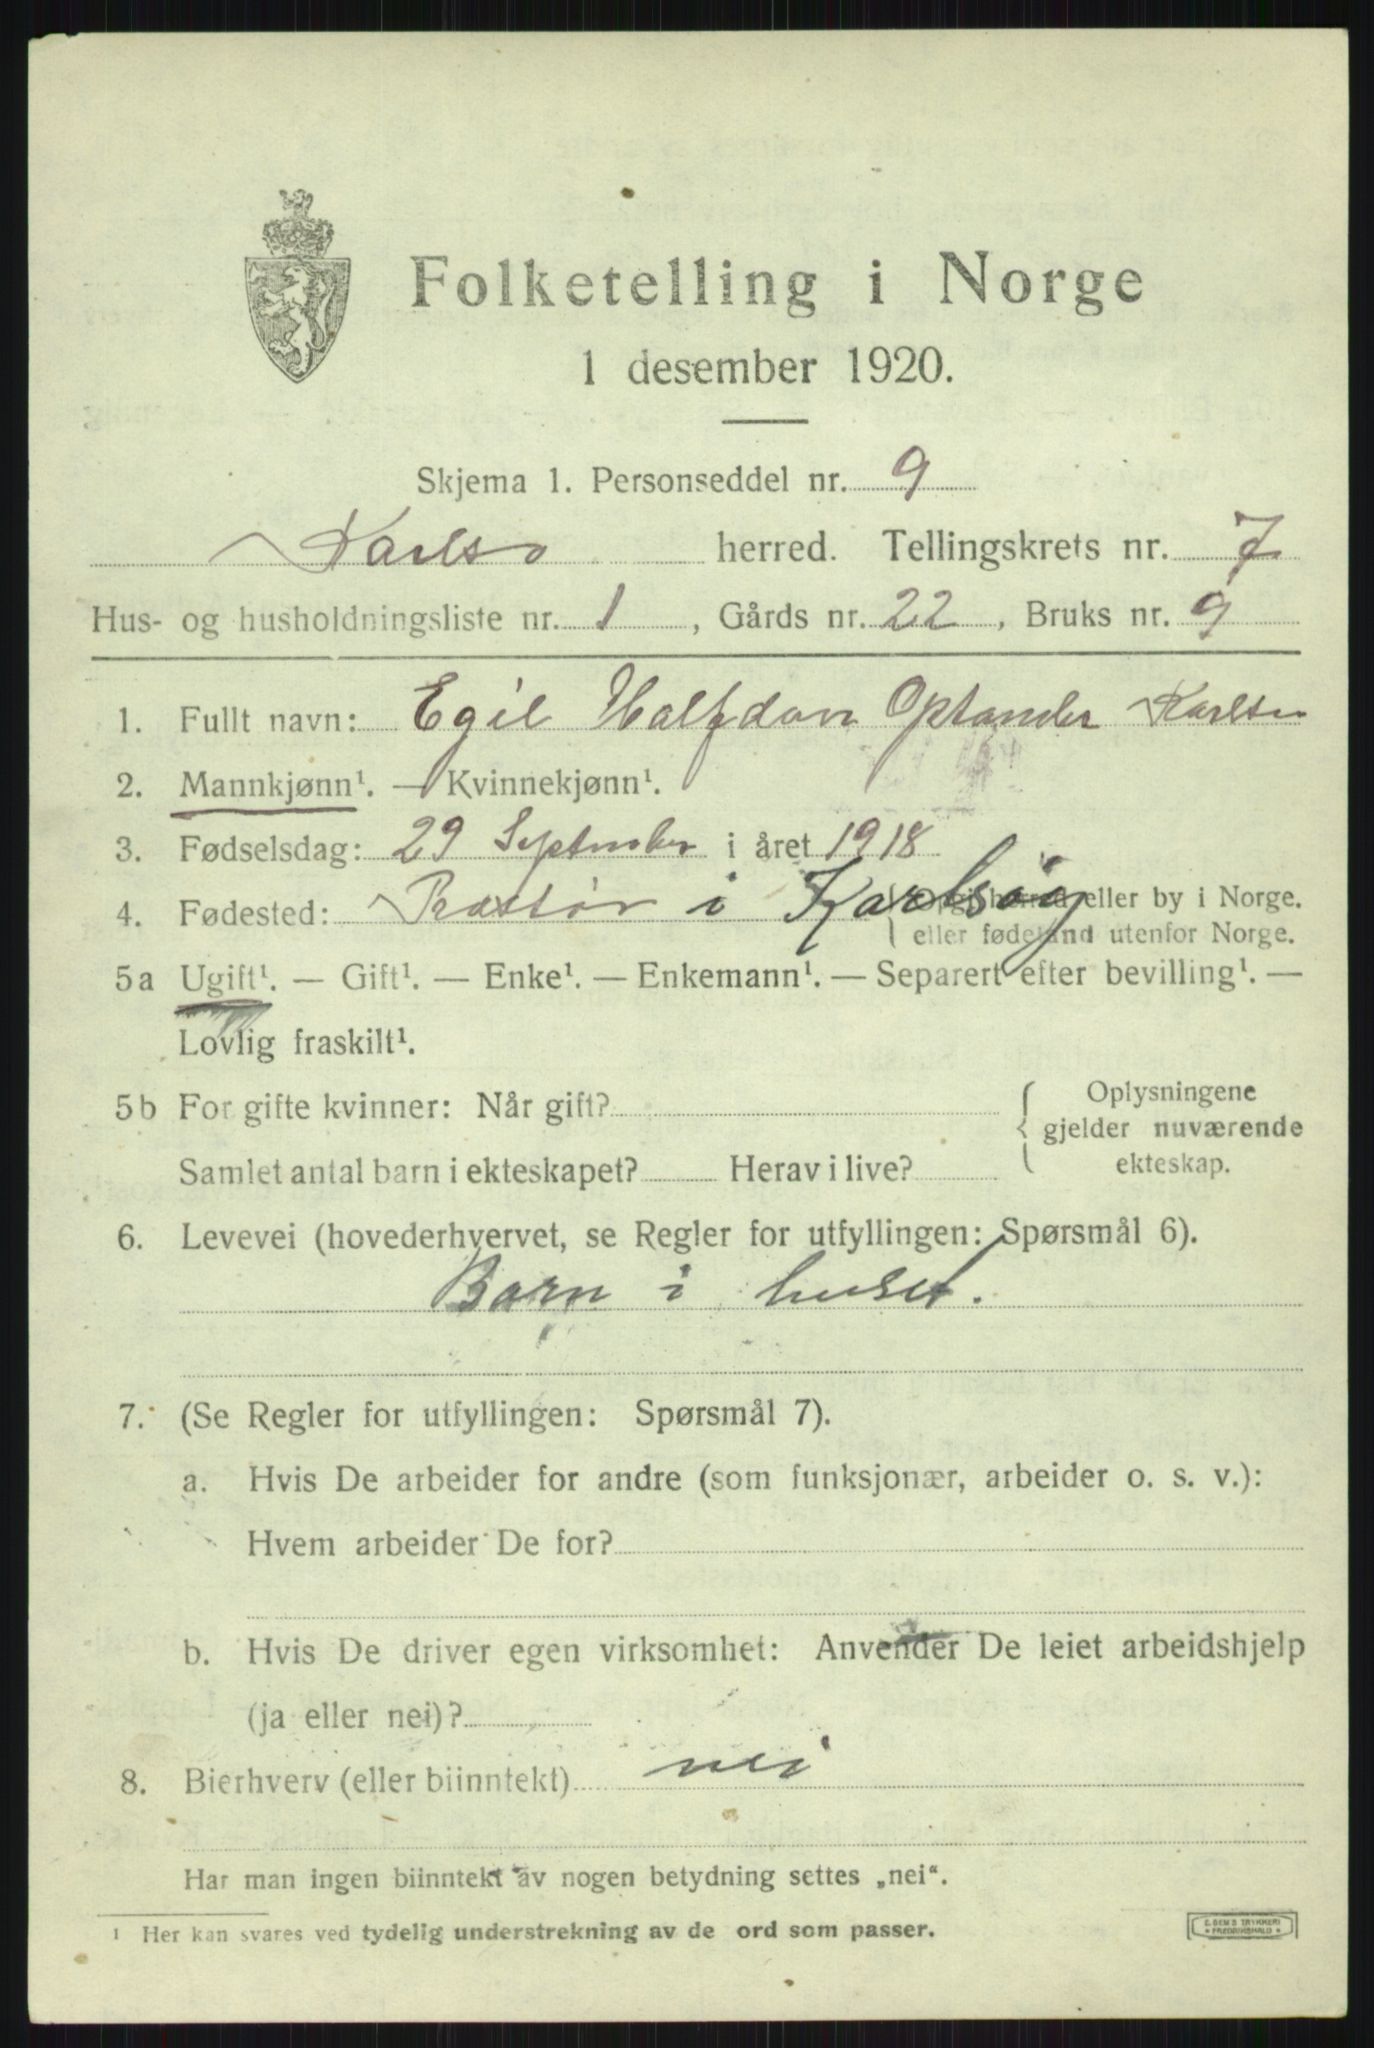 Folketelling i Norge
1 desember 1920.
Skjema 1. Personseddel nr. 9
Karlsø herred. Tellingskrets nr. 7
Hus- og husholdningsliste nr. 1, Gårds nr. 22, Bruks nr. 9
1. Fullt navn: Egil Halfdan Optander Karlsen
2. Mannkjønn¹. — Kvinnekjønn¹.
3. Fødselsdag: 29 September i året 1918
4. Fødested: i Karlsøy
Opgi herred eller by i Norge.
eller fødeland utenfor Norge.
5a Ugift¹. — Gift¹. — Enke¹. — Enkemann¹. — Separert efter bevilling¹. —
Lovlig fraskilt¹.
5b For gifte kvinner: Når gift?
Samlet antal barn i ekteskapet? Herav i live?
Oplysningene
gjelder nuværende
ekteskap.
6. Levevei (hovederhvervet, se Regler for utfyllingen: Spørsmål 6).
Barn i huset.
7. (Se Regler for utfyllingen: Spørsmål 7).
a. Hvis De arbeider for andre (som funksjonær, arbeider o. s. v.):
Hvem arbeider De for?
b. Hvis De driver egen virksomhet: Anvender De leiet arbeidshjelp
(ja eller nei)?
8. Bierhverv (eller biinntekt) nei
Har man ingen biinntekt av nogen betydning settes „nei“.
¹ Her kan svares ved tydelig understrekning av de ord som passer.
E. SEM'S TRYKKERI
• FREDRIKSHALD •